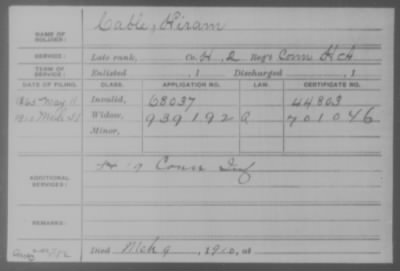 NAME OF SOLDIER: Cable, Hiram
SERVICE: Late rank, Co. H, 2 Reg't Conn H A
TERM OF SERVICE: Enlisted , 1 Discharged , 1
DATE OF FILING. CLASS. APPLICATION NO. LAW. CERTIFICATE NO.
1865 May 11 Invalid, 68037 44803
1910 Mch 25 Widow, 939192 a 701046
Minor,
ADDITIONAL SERVICES: 19 Conn Inf
REMARKS:
Died Mch 9, 1910, at